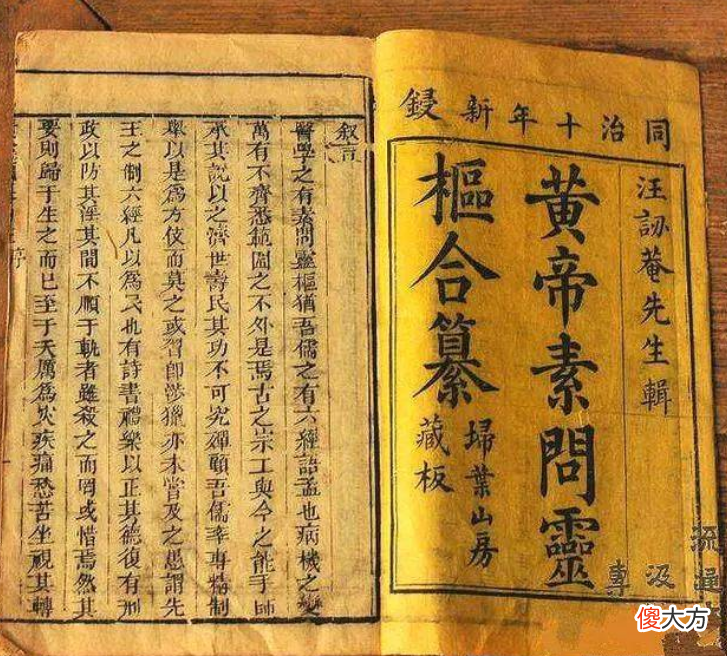 同治十年新鋟
汪訒菴先生輯
黄帝素問靈
樞合纂
埽葉山房
藏板
叙言
醫學之有素問靈樞猶吾儒之有六經語孟也病機之變
萬有不齊悉範圍之不外是焉古之宗工與今之能手師
承其説以之濟世壽民其功不可究殫顧吾儒率專精制
舉以是爲方伎而莫之或習即涉獵亦未嘗及之愚謂先
王之制六經凡以爲民也有詩書禮樂以正其德復有刑
政以防其淫其間不順于軌者雖殺之而罔或惜焉然其
要則歸于生之而已至于夭厲爲災疾痛愁苦坐視其轉
傻大方